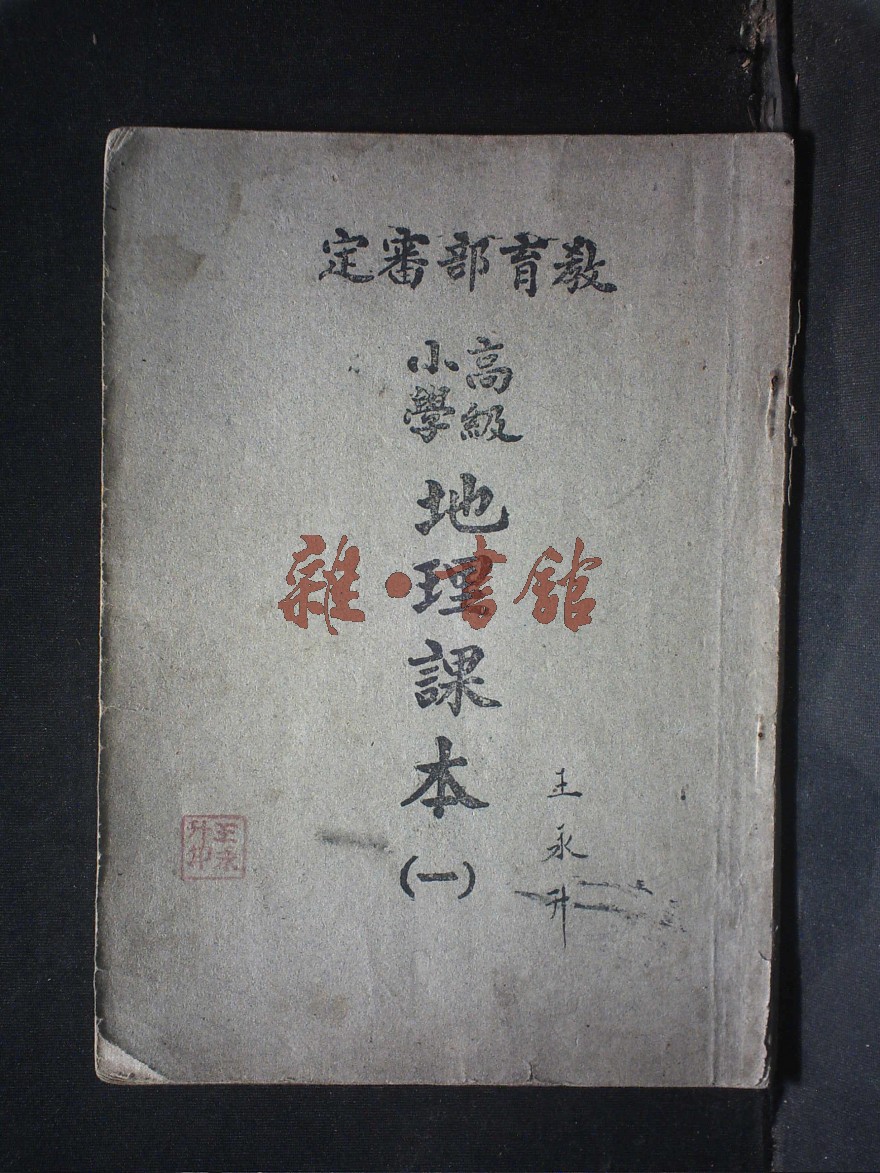 教育部審定
高級
小學
地理課本
(一)
雜·書館
王永升
王永
升印